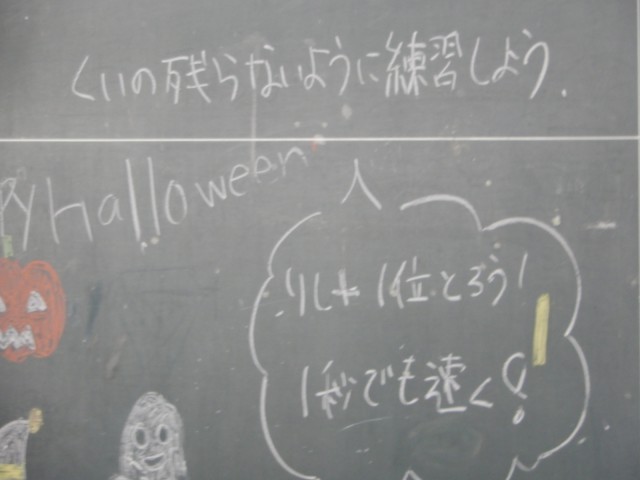 くいの残らないように練習しよう.
py halloween
人
りレー1位とろう!
1秒でも速く!